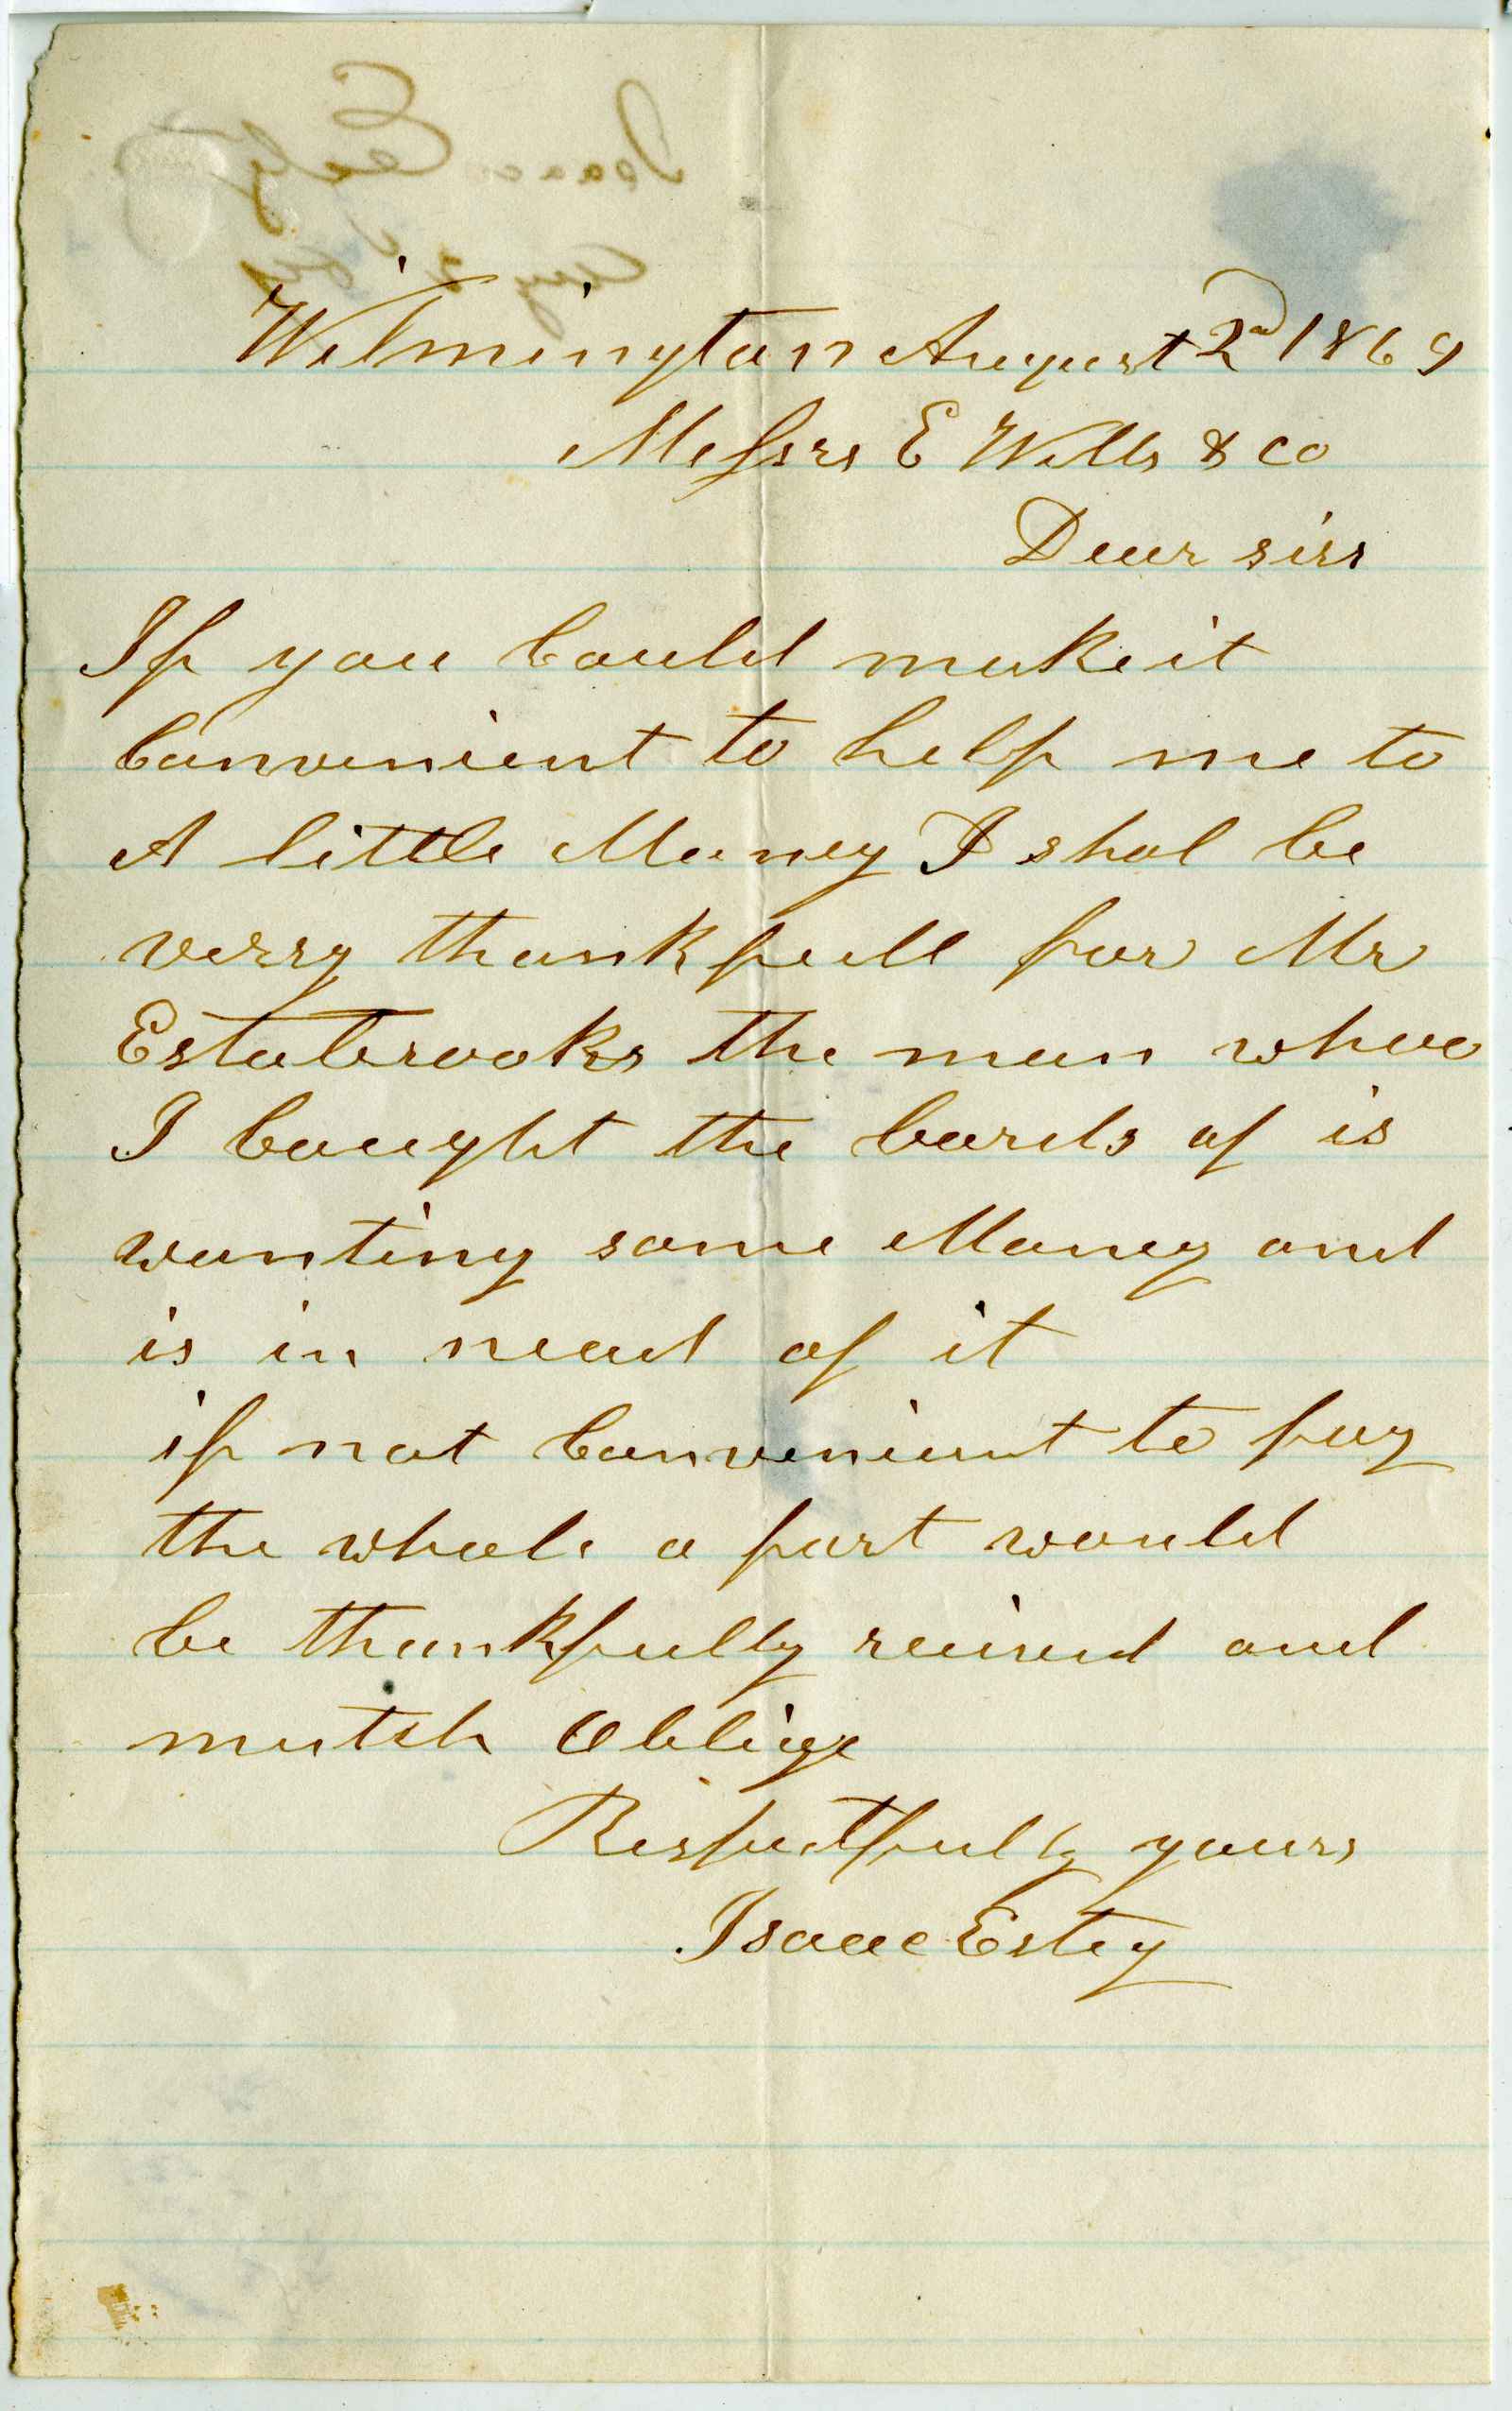 Isaac Esty
Aug 2
Wilmington August 2nd 1869
Messrs E Wells & co
Dear sirs
If you Could make it
Convenient to help me to
A little Money I shal be
verry thankfull for Mr
Estabrooks the man whoo
I bought the bords of is
wanting some Money and
is in nead of it
if not Convenient to pay
the whole a part would
be thankfully reicived and
mutch Oblige
Respectfully yours
Isaac Estey